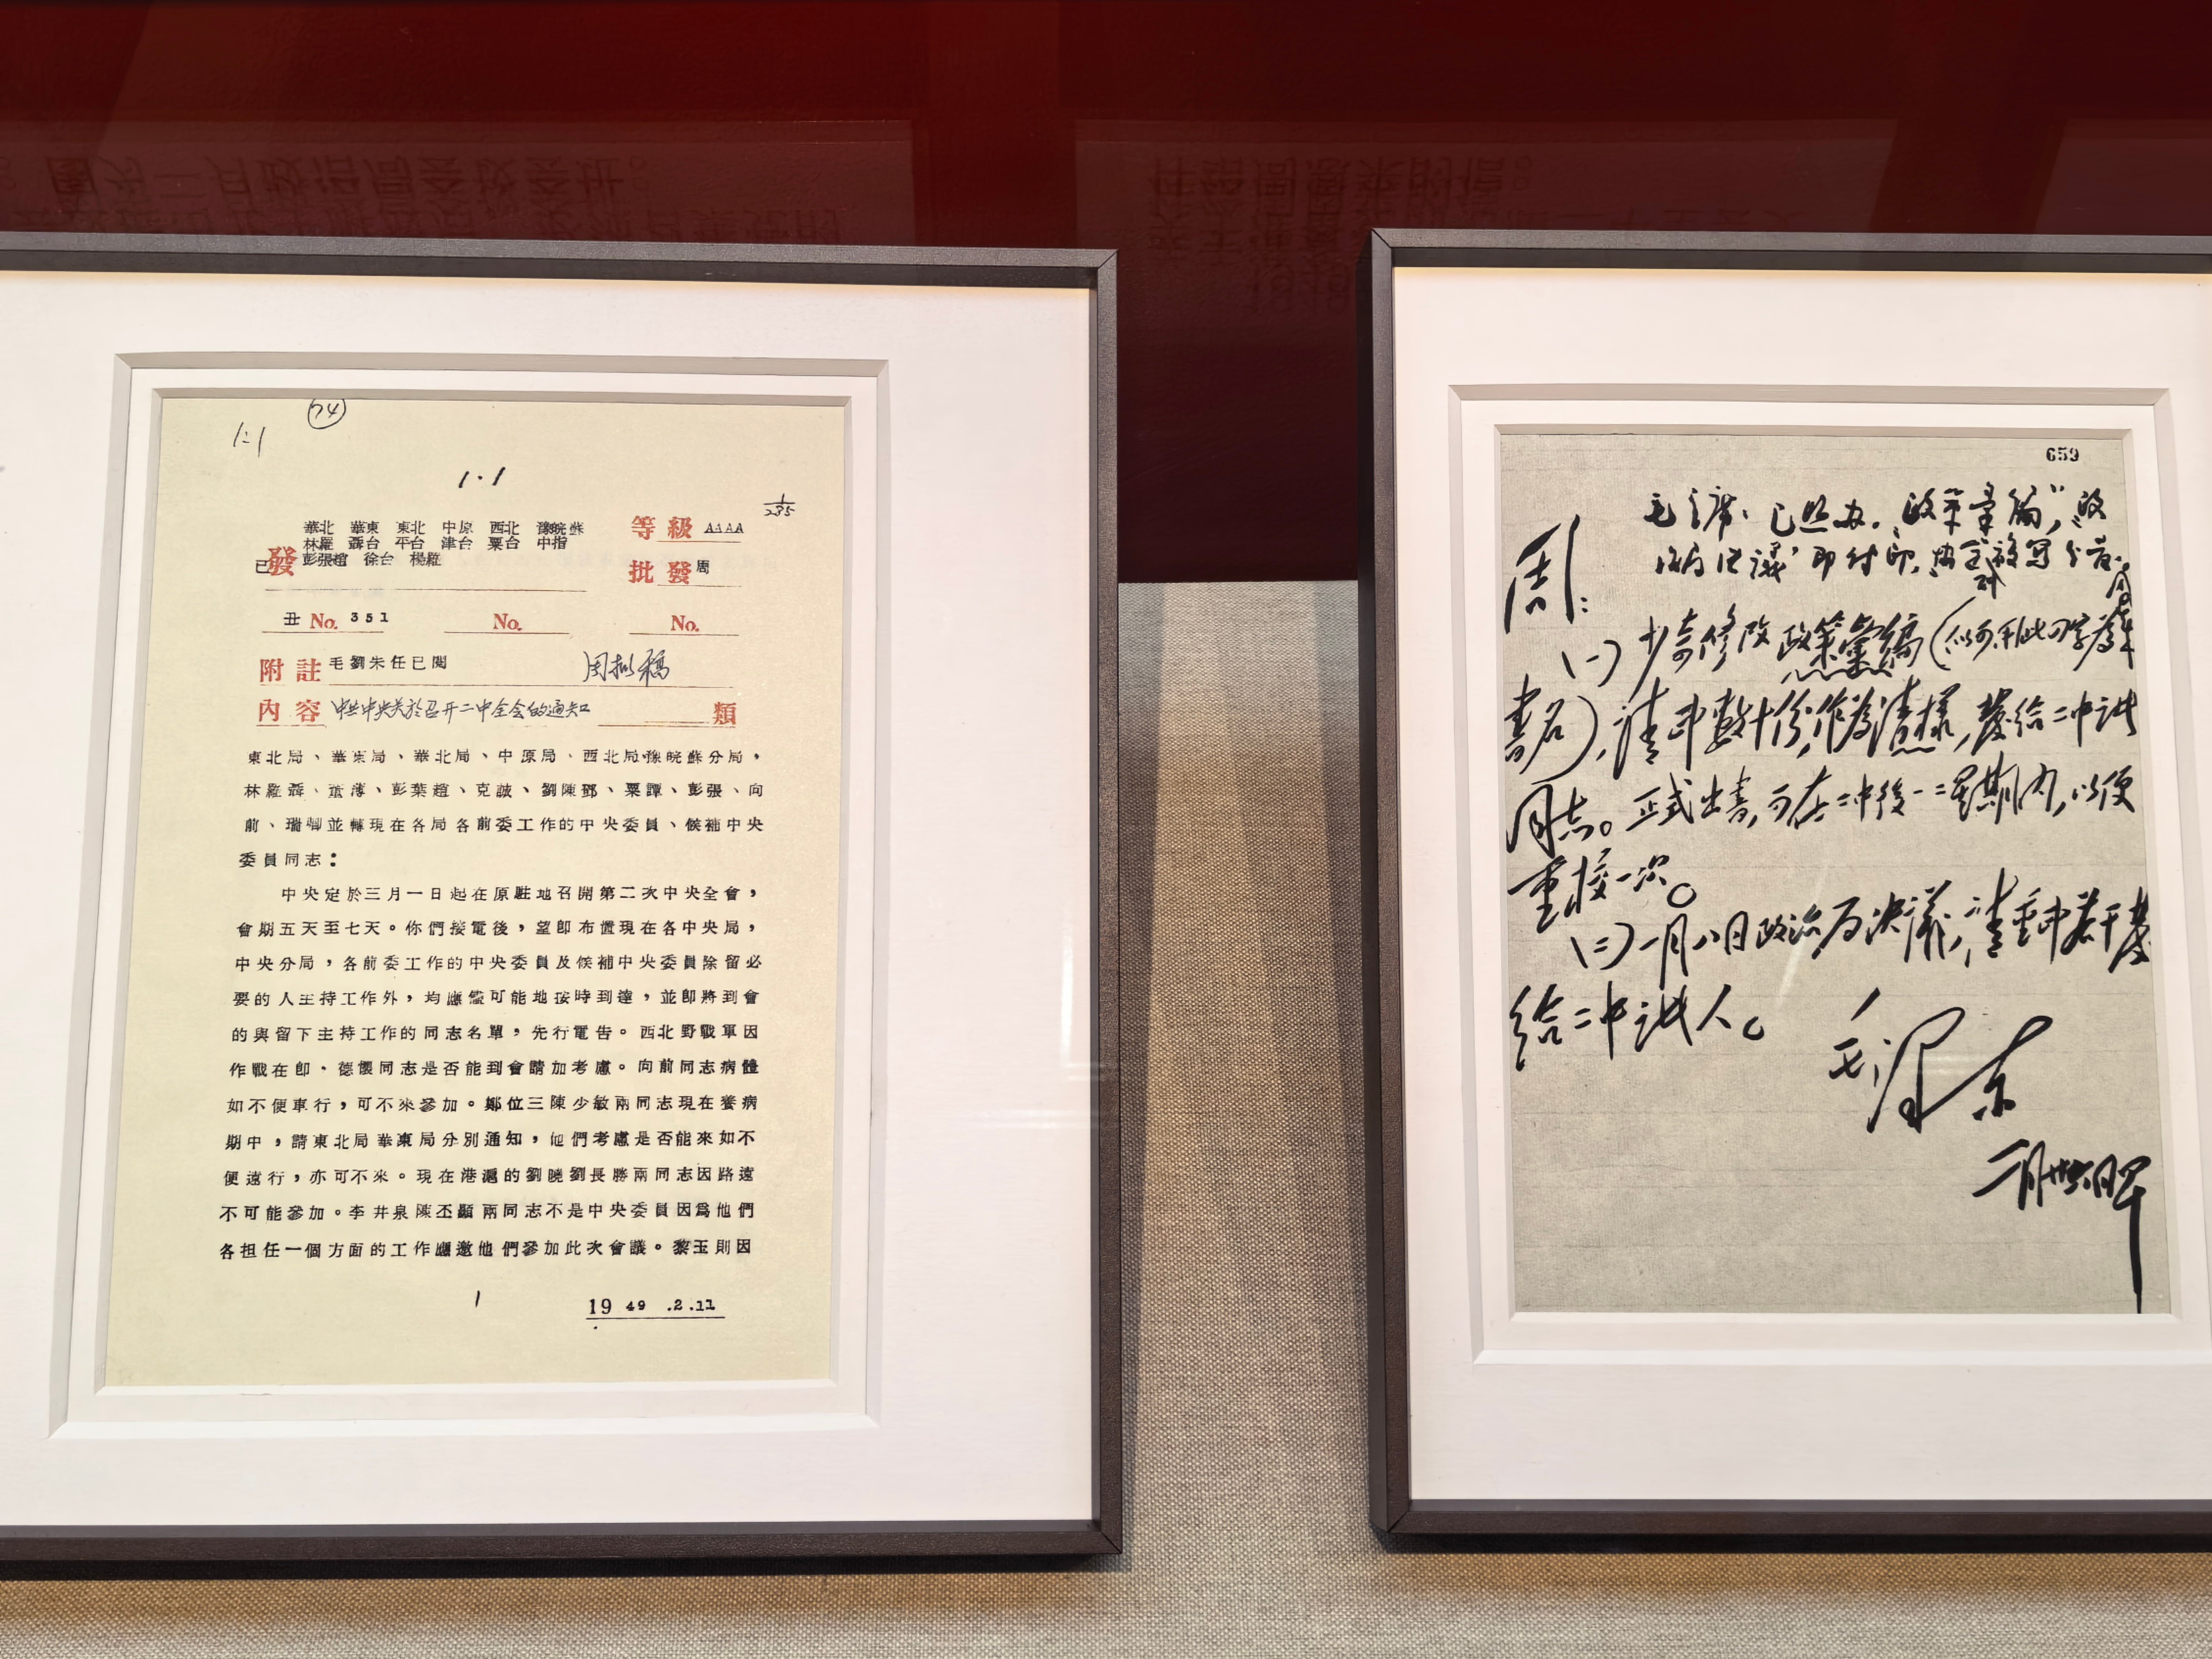 74
1:1
1·1
1/235
華北 華東 東北 中原 西北 豫皖蘇
等級 AAAA
林羅 聶台 平台 津台 粟台 中指
已發 彭張趙 徐台 楊羅
批發 周
丑 No. 351 No. No.
附註 毛劉朱任已閱 周拟稿
內容 中共中央关於召开二中全会的通知 類
東北局、華東局、華北局、中原局、西北局豫皖蘇分局，
林羅聶、董薄、彭葉趙、克誠、劉陳鄧、粟譚、彭張、向
前、瑞卿並轉現在各局各前委工作的中央委員、候補中央
委員同志：
中央定於三月一日起在原駐地召開第二次中央全會，
會期五天至七天。你們接電後，望卽布置現在各中央局，
中央分局，各前委工作的中央委員及候補中央委員除留必
要的人主持工作外，均應儘可能地按時到達，並卽將到會
的與留下主持工作的同志名單，先行電告。西北野戰軍因
作戰在卽、德懷同志是否能到會請加考慮。向前同志病體
如不便車行，可不來參加。鄭位三陳少敏兩同志現在養病
期中，請東北局華東局分別通知，他們考慮是否能來如不
便遠行，亦可不來。現在港滬的劉曉劉長勝兩同志因路遠
不可能參加。李井泉陳丕顯兩同志不是中央委員因爲他們
各担任一個方面的工作應邀他們參加此次會議。黎玉則因
1
1949.2.11
659
毛主席：已照办。“政策彙編”，“政
治局决議”即付印，
周：
(一)少奇修改政策彙編(似可利此四字為
書名)，請印數十份，作為清樣，發給二中誠
同志。正式出書，可在二中後一二星期内，以便
重校一次。
(二)一月八日政治局决議，請重印若干發
給二中誠人。
毛澤东
二月廿六日早